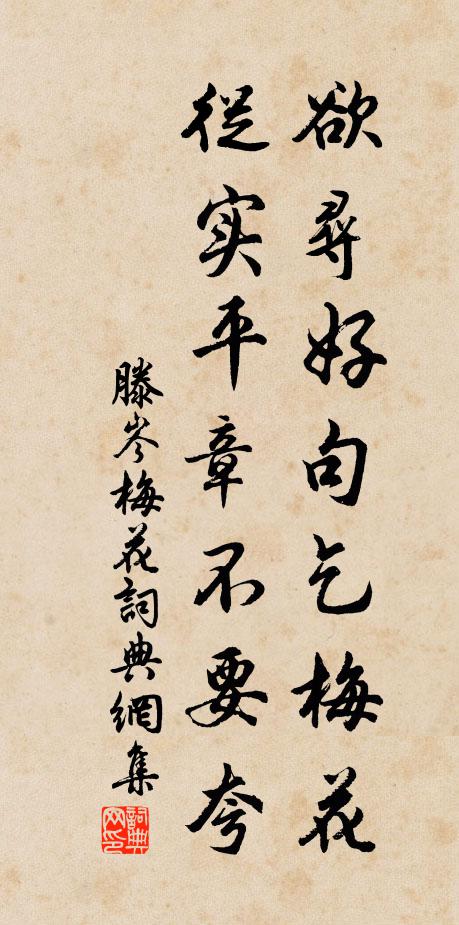 欲尋好句乞梅花
從实平章不要夸
滕岑梅花詞典網集
詞典网印